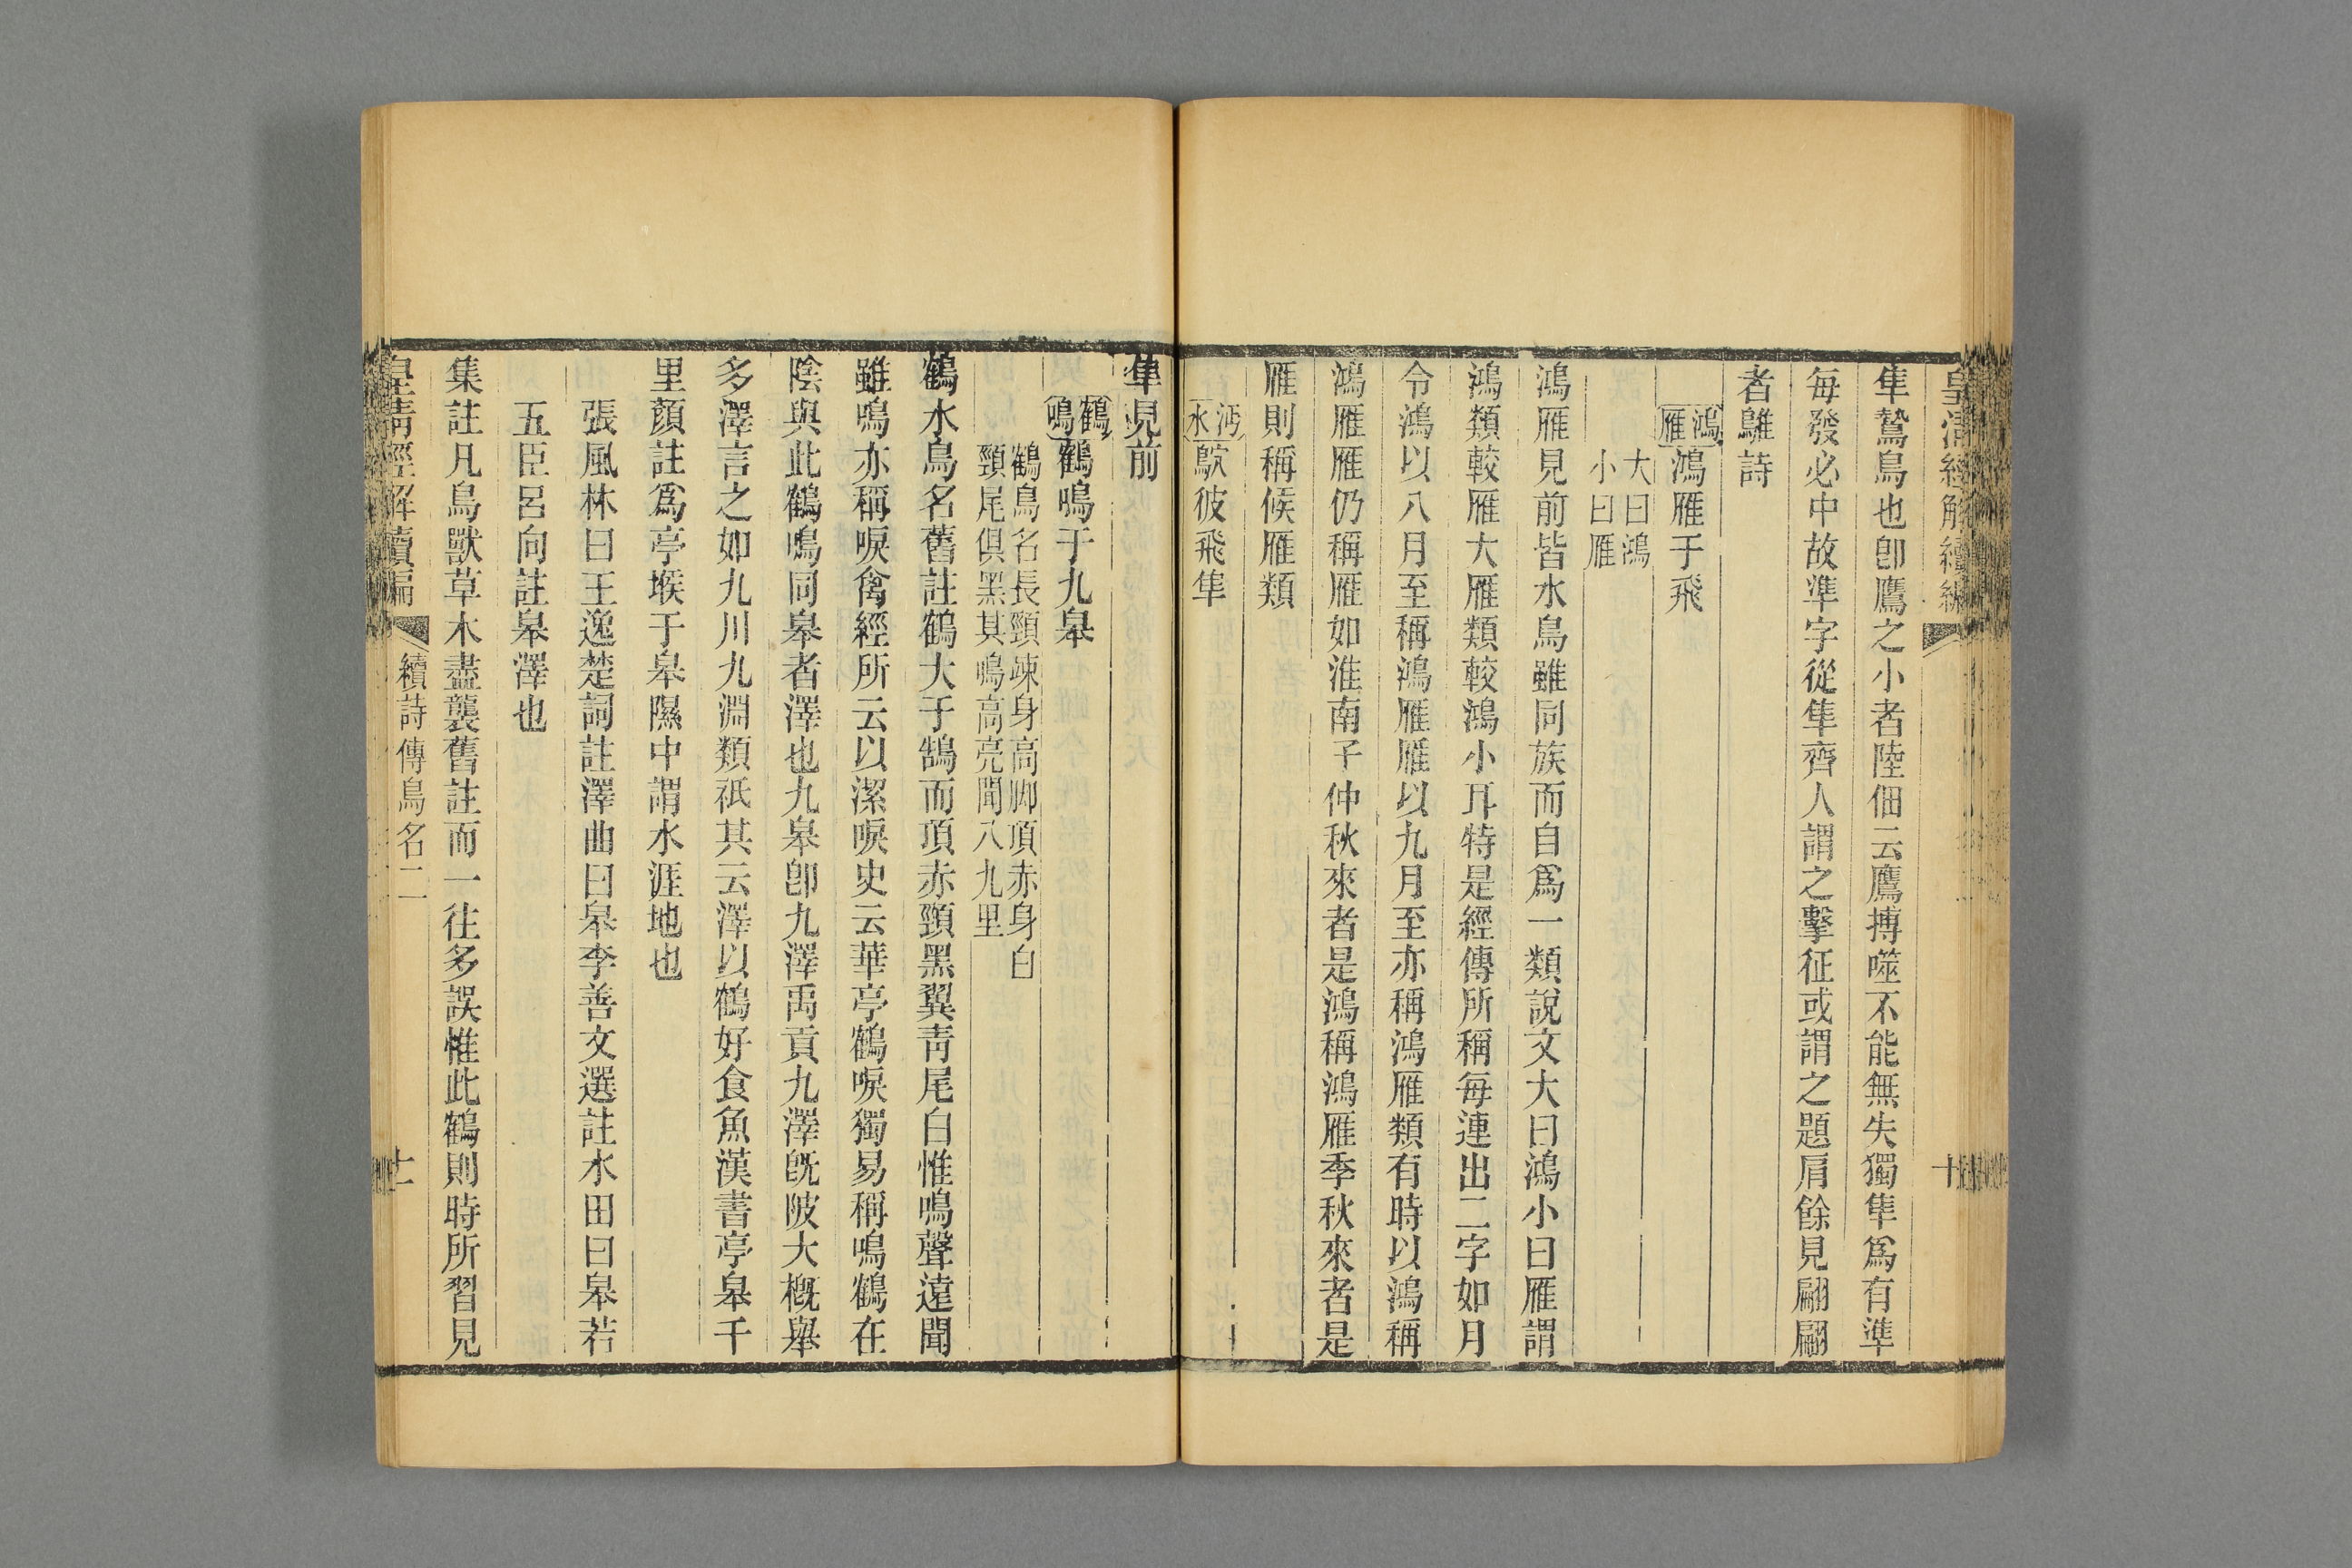 皇清經解續編
十
隼鷙鳥也卽鷹之小者陸佃云鷹搏噬不能無失獨隼爲有準
每發必中故準字從隼齊人謂之擊征或謂之題肩餘見翩翩
者鵻詩
鴻雁鴻雁于飛
大曰鴻
小曰雁
鴻雁見前皆水鳥雖同族而自爲一類說文大曰鴻小曰雁謂
鴻類較雁大雁類較鴻小耳特是經傳所稱每連出二字如月
令鴻以八月至稱鴻雁雁以九月至亦稱鴻雁類有時以鴻稱
鴻雁雁仍稱雁如淮南子仲秋來者是鴻稱鴻雁雁季秋來者是
雁則稱候雁類
沔水鴥彼飛隼
隼見前
鶴鳴鶴鳴于九皋
鶴鳥名長頸竦身高脚頂赤身白
頸尾俱黑其鳴高亮聞八九里
鶴水鳥名舊註鶴大于鵠而頂赤頸黑翼青尾白惟鳴聲遠聞
雖鳴亦稱唳禽經所云以潔唳史云華亭鶴唳獨易稱鳴鶴在
陰與此鶴鳴同皋者澤也九皋卽九澤禹貢九澤旣陂大槪舉
多澤言之如九川九淵類祇其云澤以鶴好食魚漢書亭皋千
里顏註爲亭堠于皋隰中謂水涯地也
張風林曰王逸楚詞註澤曲曰皋李善文選註水田曰皋若
五臣呂向註皋澤也
集註凡鳥獸草木盡襲舊註而一往多誤惟此鶴則時所習見
皇清經解續編
續詩傳鳥名二
十一